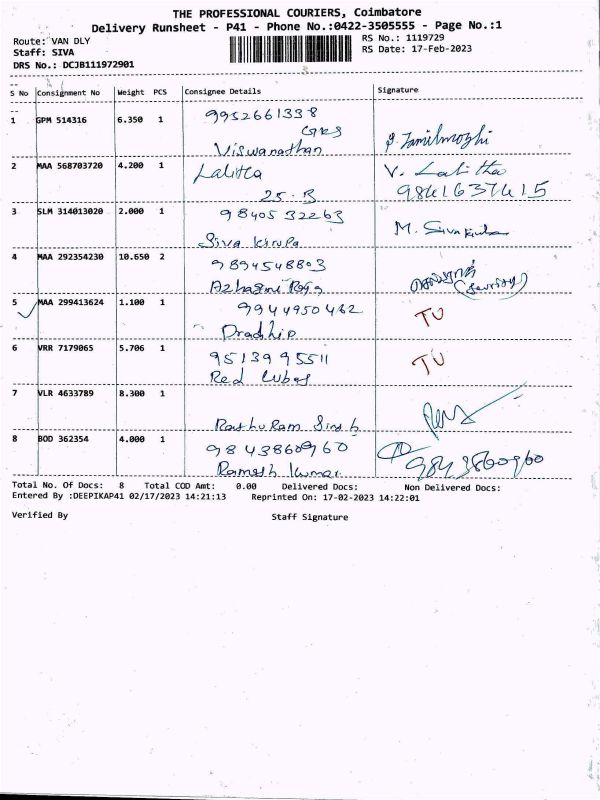 THE PROFESSIONAL COURIERS, Coimbatore
Delivery Runsheet - P41 - Phone No.:0422-3505555 - Page No.:1
Route: VAN DLY
RS No.: 1119729
Staff: SIVA
RS Date: 17-Feb-2023
DRS No.: DCJB111972901
S No Consignment No Weight PCS Consignee Details Signature
1 GPM 514316 6.350 1 9952661338
Viswanathan
2 MAA 568703720 4.200 1 Lalitha V. Lalitha
25-B 9841637415
3 SLM 314013020 2.000 1 9840532263 M. Sivakumar
Siva Kirupa
4 MAA 292354230 10.650 2 9894548803
(Security)
5 MAA 299413624 1.100 1 9944950462 TU
Pradhip
6 VRR 7179065 5.706 1 9513995511 TU
Red
7 VLR 4633789 8.300 1
8 BOD 362354 4.000 1 9843860960 9843860960
Ramesh Kumar
Total No. Of Docs: 8 Total COD Amt: 0.00 Delivered Docs: Non Delivered Docs:
Entered By :DEEPIKAP41 02/17/2023 14:21:13 Reprinted On: 17-02-2023 14:22:01
Verified By Staff Signature